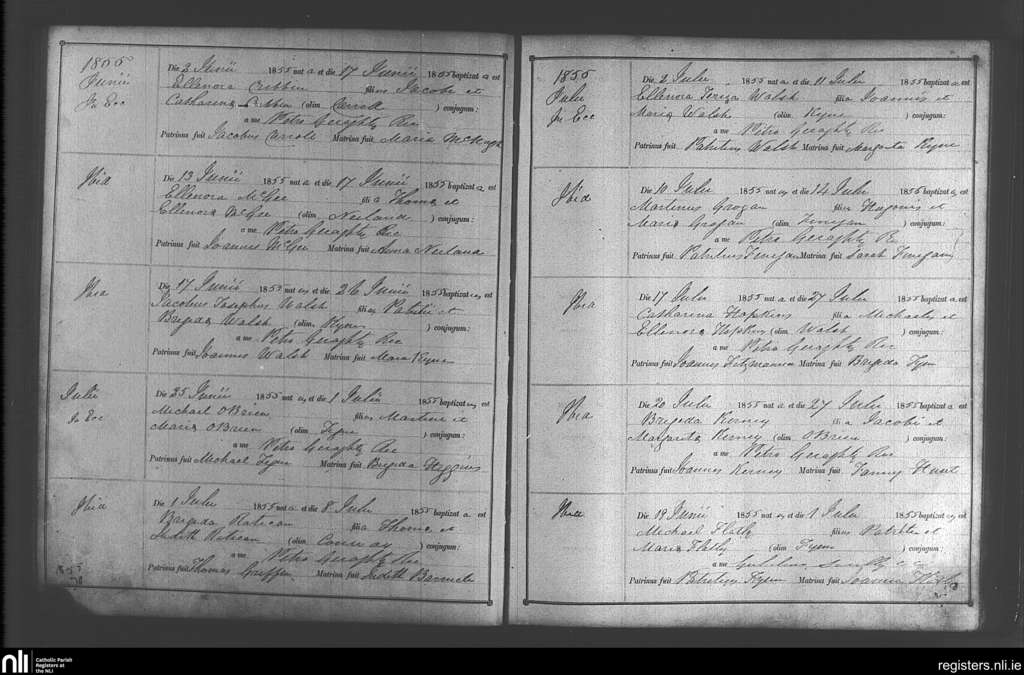 1855
Junii
In Ecc
Die 2 Junii 1855 nat a et die 17 Junii 1855 baptizat a est
Ellenora Cribbin filia Jacobi et
Catharina Cribbin (olim Carroll ) conjugum:
a me Petro Geraghty Rec
Patrinus fuit Jacobus Carroll Matrina fuit Maria McHugh
Ibid
Die 13 Junii 1855 nat a et die 17 Junii 1855 baptizat a est
Ellenora McGee fili a Thoma et
Ellenora McGee (olim Neiland ) conjugum:
a me Petro Geraghty Rec
Patrinus fuit Joannes McGee Matrina fuit Anna Neiland
Ibid
Die 17 Junii 1855 nat us et die 26 Junii 1855 baptizat us est
Jacobus Josephus Walsh fili us Patritii et
Brigida Walsh (olim Kyne ) conjugum:
a me Petro Geraghty Rec
Patrinus fuit Joannes Walsh Matrina fuit Maria Kyne
Julii
In Ecc
Die 25 Junii 1855 nat us et die 1 Julii 1855 baptizat us est
Michael OBrien fili us Martini et
Maria OBrien (olim ) conjugum:
a me Petro Geraghty Rec
Patrinus fuit Michael Matrina fuit Brigida Higgins
Ibid
Die 1 Julii 1855 nat a et die 8 Julii 1855 baptizat a est
Brigida Ratican fili a Thoma et
Judith Ratican (olim Conway ) conjugum:
a me Petro Geraghty Rec
Patrinus fuit Thomas Griffin Matrina fuit Judith
1855
1855
Julii
In Ecc
Die 2 Julii 1855 nat a et die 11 Julii 1855 baptizat a est
Ellenora Teresa Walsh fili a Joannis et
Maria Walsh (olim Kyne ) conjugum:
a me Petro Geraghty Rec
Patrinus fuit Patritius Walsh Matrina fuit Margarita Kyne
Ibid
Die 10 Julii 1855 nat us et die 14 Julii 1855 baptizat us est
Martinus Grogan fili us Hugonis et
Maria Grogan (olim Finegan ) conjugum:
a me Petro Geraghty Rec
Patrinus fuit Patritius Finegan Matrina fuit Sarah Finegan
Ibid
Die 17 Julii 1855 nat a et die 27 Julii 1855 baptizat a est
Catharina Hopkins fili a Michaelis et
Ellenora Hopkins (olim Walsh ) conjugum:
a me Petro Geraghty Rec
Patrinus fuit Joannes Fitzmaurice Matrina fuit Brigida
Ibid
Die 20 Julii 1855 nat a et die 27 Julii 1855 baptizat a est
Brigida Kerney fili a Jacobi et
Margarita Kerney (olim OBrien ) conjugum:
a me Petro Geraghty Rec
Patrinus fuit Joannes Kerney Matrina fuit Fanny Hunt
Ibid
Die 19 Junii 1855 nat us et die 1 Julii 1855 baptizat us est
Michael Flatly fili us Patritii et
Maria Flatly (olim ) conjugum:
a me Gulielmo
Patrinus fuit Patritius Matrina fuit Joanna Flatly
nli Catholic Parish
Registers at
the NLI
registers.nli.ie